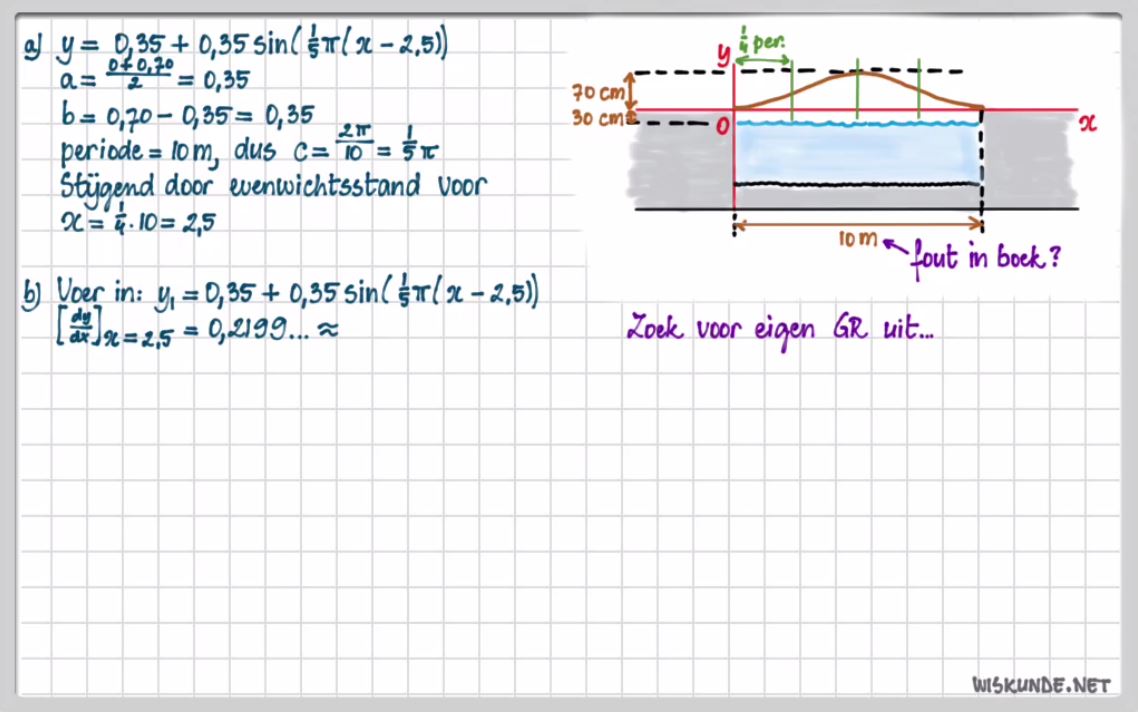 a) y = 0,35 + 0,35 sin(⅕π(x − 2,5))
a = (0+0,70)/2 = 0,35
b = 0,70 − 0,35 = 0,35
periode = 10 m, dus c = 2π/10 = ⅕π
Stijgend door evenwichtsstand voor
x = ¼ · 10 = 2,5
b) Voer in: y₁ = 0,35 + 0,35 sin(⅕π(x − 2,5))
[dy/dx]x = 2,5 = 0,2199... ≈
¼ per.
y
70 cm
30 cm
O
x
10 m
fout in boek?
Zoek voor eigen GR uit...
WISKUNDE.NET